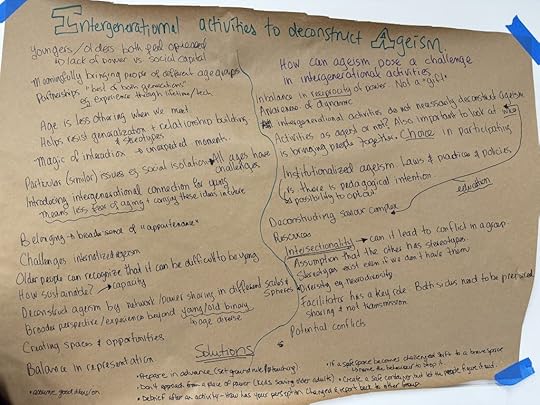 Intergenerational activities to deconstruct Ageism.
Youngers/olders both feel
→ lack of power vs social capital
Meaningfully bringing people of different age groups
Partnerships "best of both generations"
eg Experience through lifetime/tech
Age is less othering when we meet.
Helps resist generalization & relationship building
& stereotypes
Magic of interaction → unexpected moments.
Particular (similar) issues eg social isolation All ages have
challenges.
Introducing intergenerational connection for young
means less fear of aging & convey these ideas in where
Belonging → broader sense of "appartenance"
Challenges internalized ageism
Older people can recognize that it can be difficult to be young
How sustainable? → capacity
Deconstruct ageism by network/power sharing in different scales &
spheres
Broader perspective/experience beyond young/old binary
image diverse
Creating spaces & opportunities.
Balance in representation
How can ageism pose a challenge
in intergenerational activities
Imbalance in reciprocity of power. Not a "gift"
Awareness of dynamic
Intergenerational activities do not necessarily deconstruct ageism
Activities as ageist or not? Also important to look at who
is bringing people together. Choice in participating
Institutionalized ageism Laws & practice & policies
is there is pedagogical intention
possibility to opt out
education
Deconstructing savior complex
Resources
Intersectionality → can it lead to conflict in a group
Assumption that the other has stereotypes
Stereotypes exist even if we don't have them
Diversity eg neurodiversity
Facilitator has a key role. Both sides need to be prepared
sharing & not transmission
Potential conflicts
Solutions
• Prepare in advance (set ground rules)
• Don't approach from a place of power (kids saving older adults)
• Debrief after an activity - How has your perception changed & report back to other group.
• Assume good intention
• If a safe space becomes challenged shift to a brave space
→ name the behaviour to stop it
• Create a safe container but let the people figure it out.